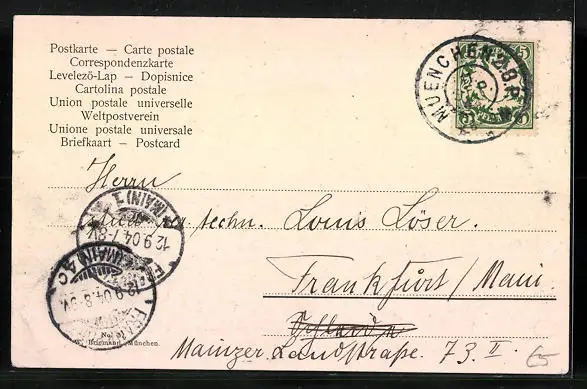 Postkarte — Carte postale
Correspondenzkarte
Levelező-Lap — Dopisnice
Cartolina postale
Union postale universelle
Weltpostverein
Unione postale universale
Briefkaart — Postcard
MUENCHEN 2 B.P.
5 5
Herrn
techn. Louis Löser.
(MAIN) 1
12.9.04. 7-8V.
Frankfurt / Main
(MAIN) 4 C
12.9.04. 8-9V.
Mainzer Landstraße. 73. II.
No.
München.
65